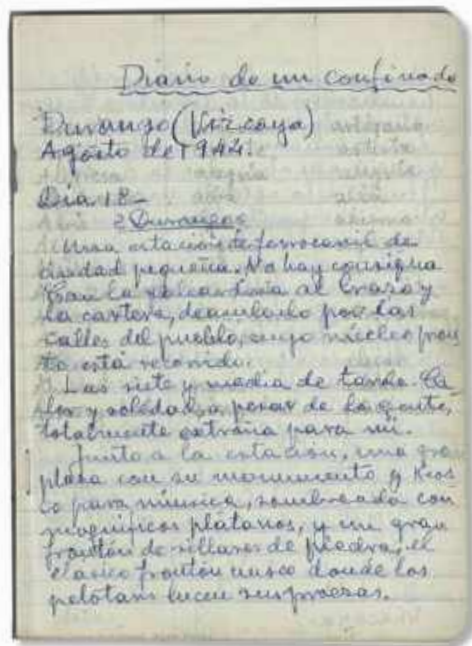 Diario de un confinado
Durango (Vizcaya)
Agosto de 1944.
Dia 18-
Durango
Una estación de ferrocarril de
ciudad pequeña. No hay consigna
Con la gabardina al brazo y
la cartera, deambulo por las
calles del pueblo, cuyo núcleo pron
to está recorrido.
Las siete y media de tarde. Ca
lor y soledad, a pesar de la gente,
totalmente extraña para mi.
Junto a la estación, una gran
plaza con su monumento y Kios
co para música, sombreada con
magníficos plátanos, y un gran
frontón de sillares de piedra, el
clásico frontón vasco donde los
pelotaris lucen sus proezas.